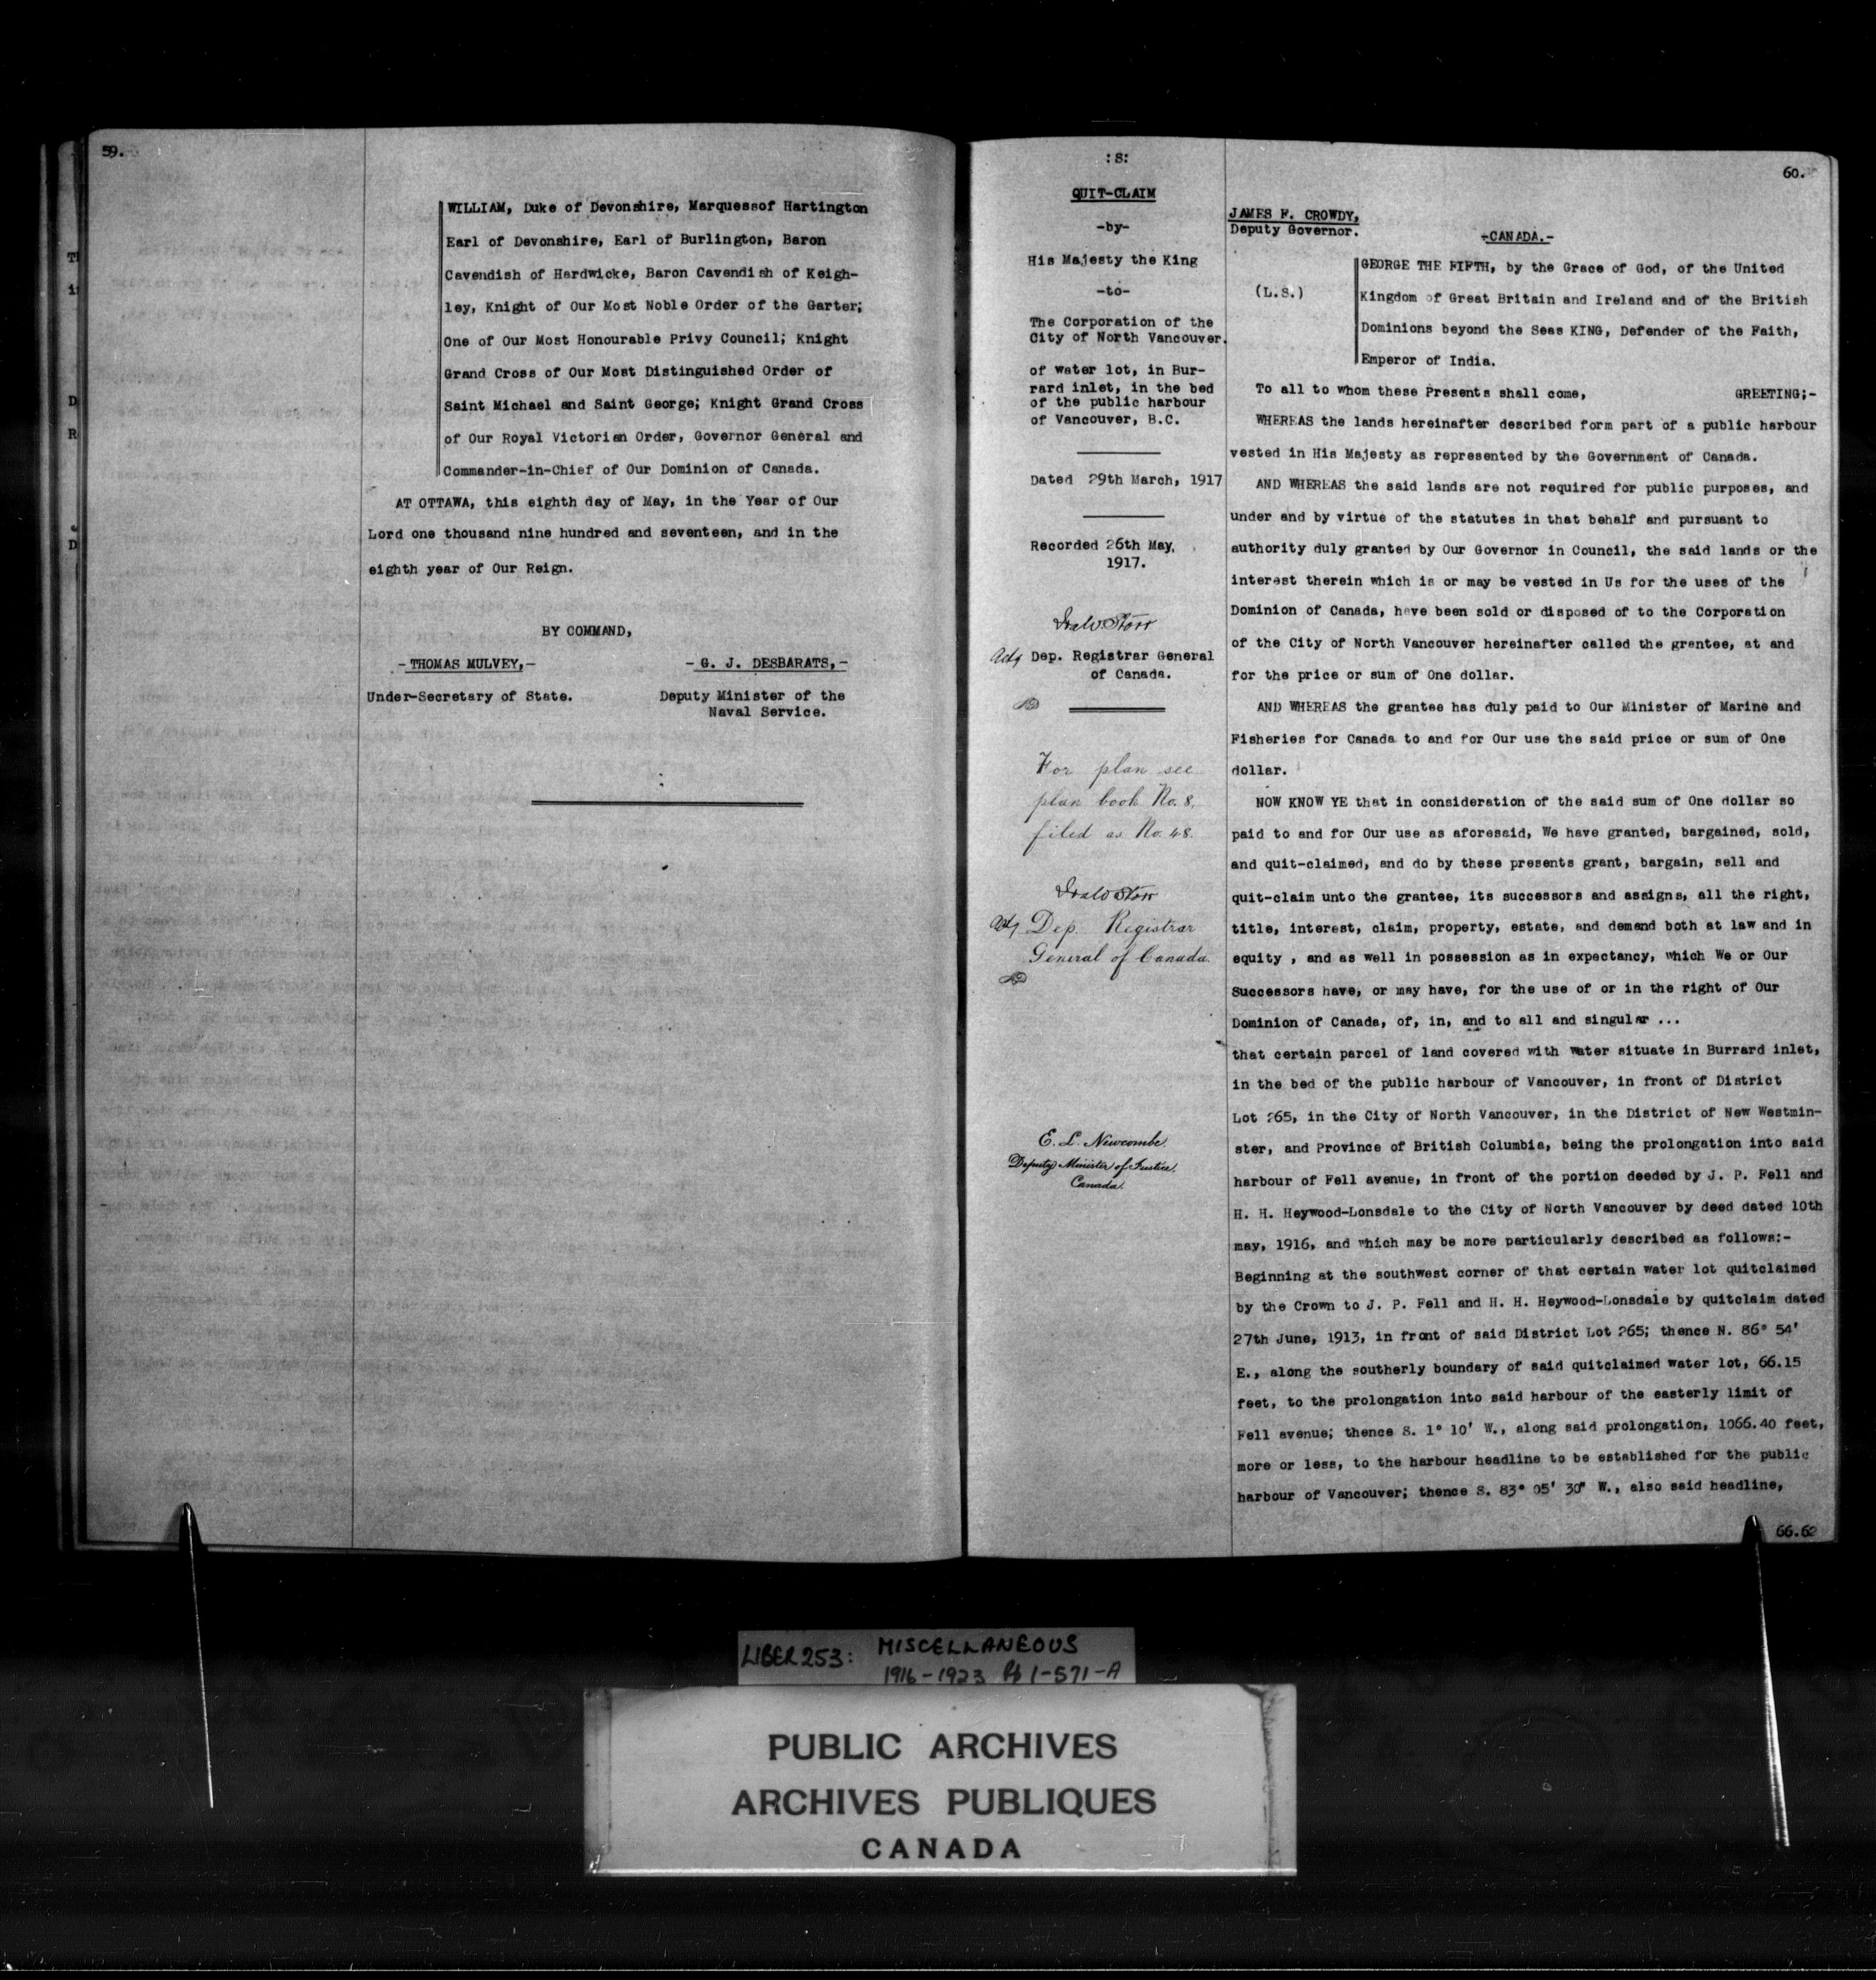 59.
WILLIAM, Duke of Devonshire, Marquessof Hartington
Earl of Devonshire, Earl of Burlington, Baron
Cavendish of Hardwicke, Baron Cavendish of Keigh-
ley, Knight of Our Most Noble Order of the Garter;
One of Our Most Honourable Privy Council; Knight
Grand Cross of Our Most Distinguished Order of
Saint Michael and Saint George; Knight Grand Cross
of Our Royal Victorian Order, Governor General and
Commander-in-Chief of Our Dominion of Canada.
AT OTTAWA, this eighth day of May, in the Year of Our
Lord one thousand nine hundred and seventeen, and in the
eighth year of Our Reign.
BY COMMAND,
-THOMAS MULVEY,-
Under-Secretary of State.
-G. J. DESBARATS,-
Deputy Minister of the
Naval Service.
:8:
QUIT-CLAIM
-by-
His Majesty the King
-to-
The Corporation of the
City of North Vancouver.
of water lot, in Bur-
rard inlet, in the bed
of the public harbour
of Vancouver, B.C.
Dated 29th March, 1917
Recorded 26th May,
1917.
Actg Dep. Registrar General
of Canada.
For plan see
plan book No. 8,
filed as No. 48.
Actg Dep. Registrar
General of Canada.
E. L. Newcombe
Deputy Minister of Justice.
Canada.
60.
JAMES F. CROWDY,
Deputy Governor.
-CANADA.-
(L.S.)
GEORGE THE FIFTH, by the Grace of God, of the United
Kingdom of Great Britain and Ireland and of the British
Dominions beyond the Seas KING, Defender of the Faith,
Emperor of India.
To all to whom these Presents shall come, GREETING;-
WHEREAS the lands hereinafter described form part of a public harbour
vested in His Majesty as represented by the Government of Canada.
AND WHEREAS the said lands are not required for public purposes, and
under and by virtue of the statutes in that behalf and pursuant to
authority duly granted by Our Governor in Council, the said lands or the
interest therein which is or may be vested in Us for the uses of the
Dominion of Canada, have been sold or disposed of to the Corporation
of the City of North Vancouver hereinafter called the grantee, at and
for the price or sum of One dollar.
AND WHEREAS the grantee has duly paid to Our Minister of Marine and
Fisheries for Canada to and for Our use the said price or sum of One
dollar.
NOW KNOW YE that in consideration of the said sum of One dollar so
paid to and for Our use as aforesaid, We have granted, bargained, sold,
and quit-claimed, and do by these presents grant, bargain, sell and
quit-claim unto the grantee, its successors and assigns, all the right,
title, interest, claim, property, estate, and demand both at law and in
equity , and as well in possession as in expectancy, which We or Our
Successors have, or may have, for the use of or in the right of Our
Dominion of Canada, of, in, and to all and singular ...
that certain parcel of land covered with water situate in Burrard inlet,
in the bed of the public harbour of Vancouver, in front of District
Lot 265, in the City of North Vancouver, in the District of New Westmin-
ster, and Province of British Columbia, being the prolongation into said
harbour of Fell avenue, in front of the portion deeded by J. P. Fell and
H. H. Heywood-Lonsdale to the City of North Vancouver by deed dated 10th
may, 1916, and which may be more particularly described as follows:-
Beginning at the southwest corner of that certain water lot quitclaimed
by the Crown to J. P. Fell and H. H. Heywood-Lonsdale by quitclaim dated
27th June, 1913, in front of said District Lot 265; thence N. 86° 54'
E., along the southerly boundary of said quitclaimed water lot, 66.15
feet, to the prolongation into said harbour of the easterly limit of
Fell avenue; thence S. 1° 10' W., along said prolongation, 1066.40 feet,
more or less, to the harbour headline to be established for the public
harbour of Vancouver; thence S. 83° 05' 30" W., also said headline,
66.62
LIBER 253: MISCELLANEOUS
1916-1923 Pt 1-571-A
PUBLIC ARCHIVES
ARCHIVES PUBLIQUES
CANADA